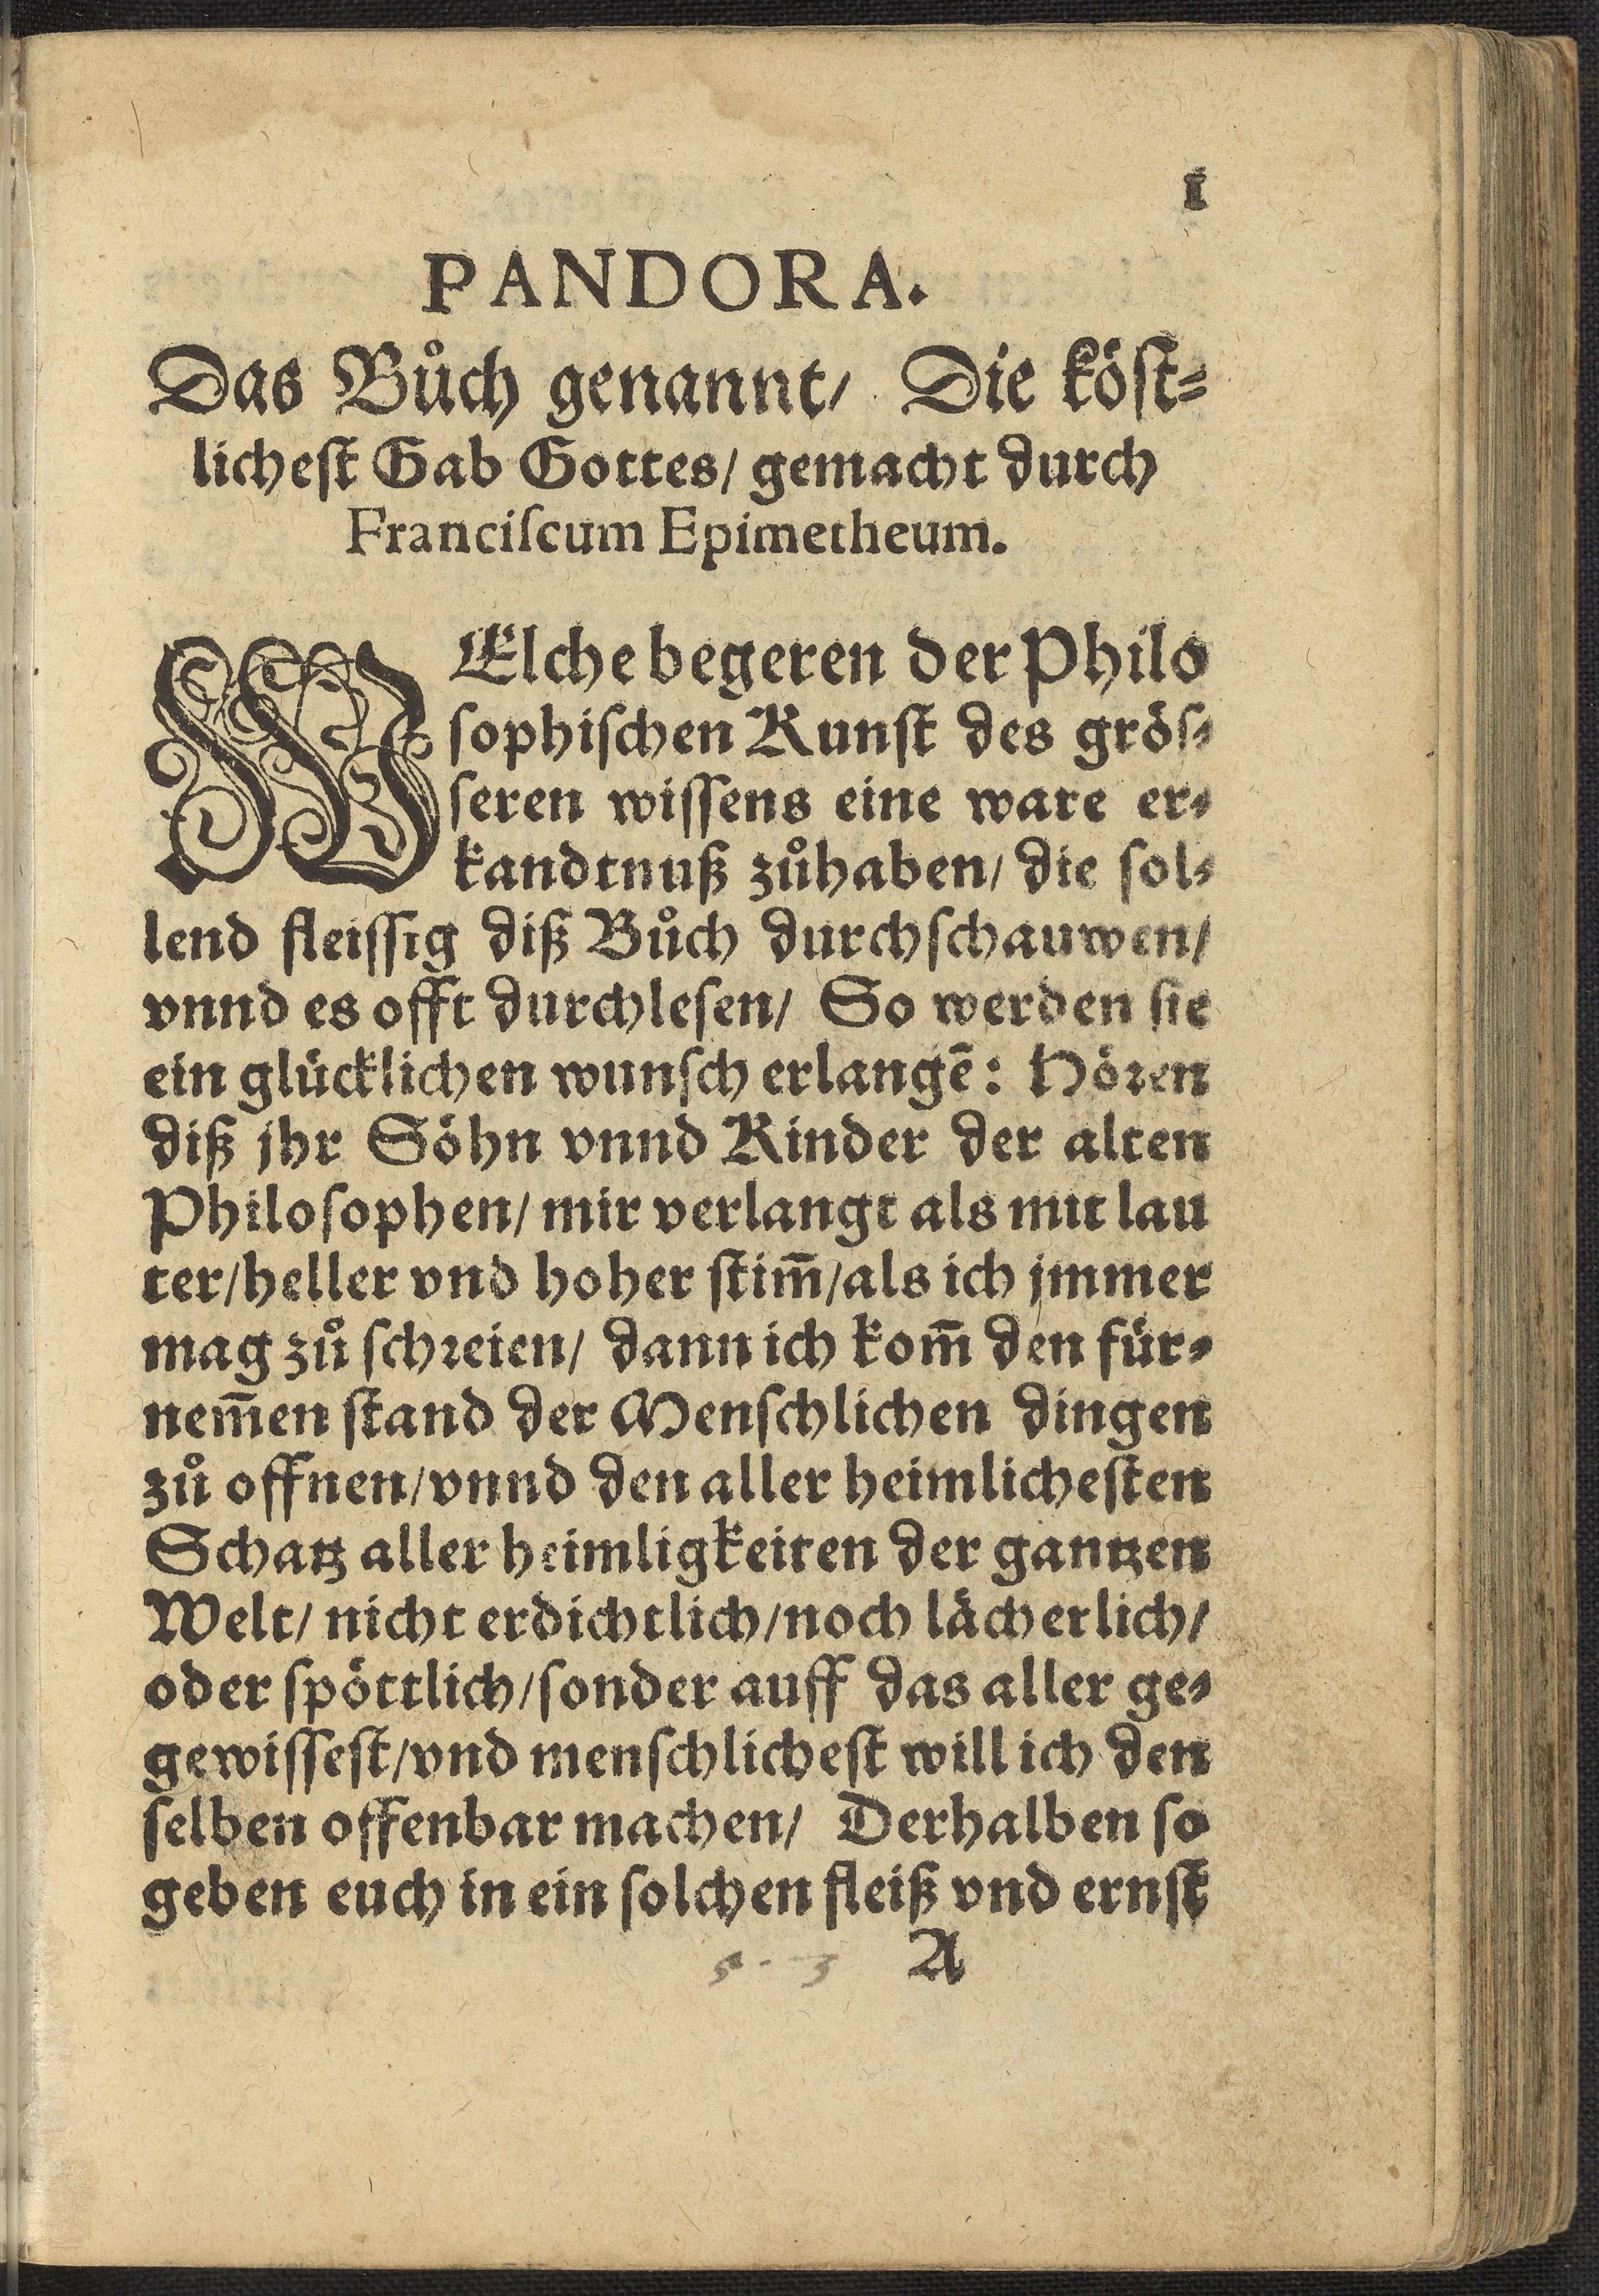 1
PANDORA.
Das Bůch genannt/ Die köst-
lichest Gab Gottes/ gemacht durch
Franciſcum Epimetheum.
WElche begeren der Philo
sophiſchen Kunſt des gröſ-
seren wiſſens eine ware er-
kandtnuß zůhaben/ die sol-
lend fleiſſig diß Bůch durchſchauwen/
vnnd es offt durchleſen/ So werden sie
ein glücklichen wunſch erlangē: Hören
diß jhr Söhn vnnd Kinder der alten
Philoſophen/ mir verlangt als mit lau
ter/heller vnd hoher ſtim̄/als ich jmmer
mag zů ſchreien/ dann ich kom̄ den für-
nem̄en ſtand der Menſchlichen dingen
zů offnen/vnnd den aller heimlicheſten
Schatz aller heimligkeiten der gantzen
Welt/ nicht erdichtlich/noch lächerlich/
oder ſpöttlich/ſonder auff das aller ge-
gewiſſeſt/vnd menſchlicheſt will ich den
ſelben offenbar machen/ Derhalben ſo
geben euch in ein ſolchen fleiß vnd ernſt
A